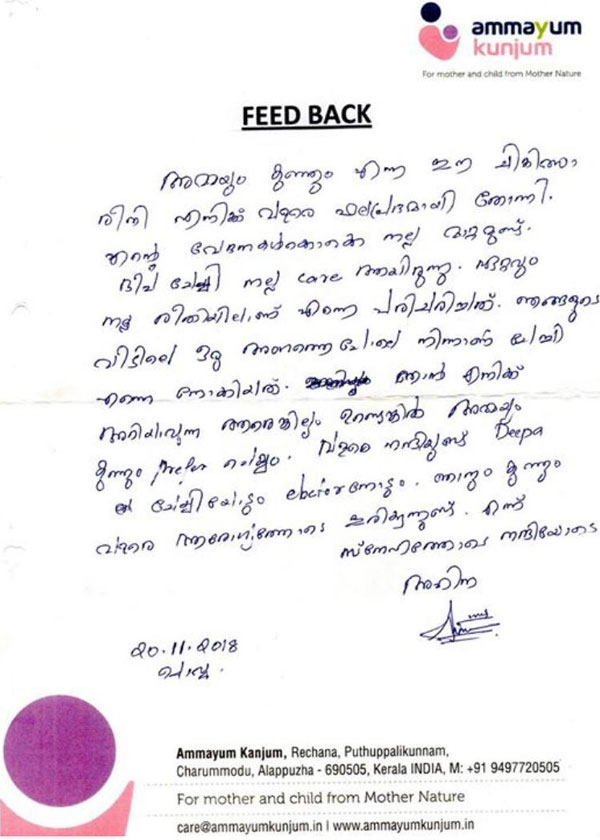 ammayum
kunjum
For mother and child from Mother Nature
FEED BACK
അമ്മയും കുഞ്ഞും എന്ന ഈ ചികിത്സാ
രീതി എനിക്ക് വളരെ ഫലപ്രദമായി തോന്നി.
എന്റെ വേദനകൾക്കൊക്കെ നല്ല മാറ്റമുണ്ട്.
ദീപ ചേച്ചി നല്ല care ആയിരുന്നു. ഏറ്റവും
നല്ല രീതിയിലാണ് എന്നെ പരിചരിച്ചത്. ഞങ്ങളുടെ
വീട്ടിലെ ഒരു അംഗത്തെപോലെ നിന്നാണ് ചേച്ചി
എന്നെ നോക്കിയത്. ഞാൻ എനിക്ക്
അറിയാവുന്ന ആരെങ്കിലും ഉണ്ടെങ്കിൽ അമ്മയും
കുഞ്ഞും prefer ചെയ്യും. വളരെ നന്ദിയുണ്ട് Deepa
ചേച്ചിയോടും doctorനോടും. ഞാനും കുഞ്ഞും
വളരെ ആരോഗ്യത്തോടെ ഇരിക്കുന്നുണ്ട്. എന്ന്
സ്നേഹത്തോടെ നന്ദിയോടെ
20.11.2018
Ammayum Kanjum, Rechana, Puthuppalikunnam,
Charummodu, Alappuzha - 690505, Kerala INDIA, M: +91 9497720505
For mother and child from Mother Nature
care@ammayumkunjum.in | www.ammayumkunjum.in